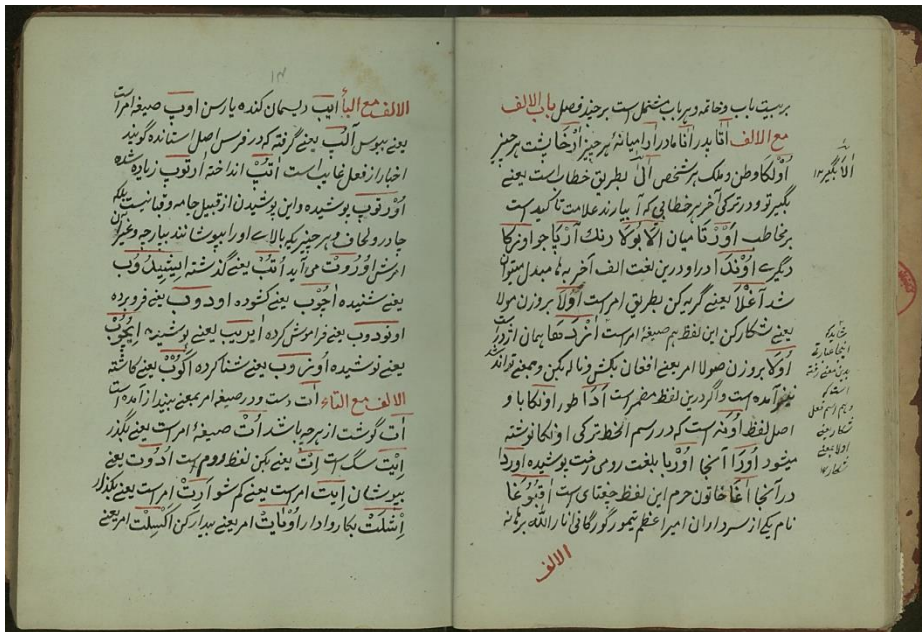 بر بیست باب و خاتمه و هر باب مشتمل است بر چند فصل باب الالف
مع الالف اتا پدر انا مادر ارا میانهٔ هر چیز ارخا پشت هر چیز
اولکا وطن و ملک هر شخص الا بطریق خطاب است یعنی
بگیر تو و در ترکی آخر هر خطابی که آ بیارند علامت تاکید است
بر مخاطب اورتا میان الا بولا رنک آرپا جو اونکا
دیگری اونک ادرا و درین لغت الف آخر به ها مبدل میتوان
شد آغلا یعنی گریه کن بطریق امر است اولا بروزن مولا
یعنی شکار کن این لفظ هم صیغهٔ امر است اژدها همان اژدر است
اولا بروزن صولا امر یعنی افغان بکش و ناله بکن و بمعنی تواند شد
نیز آمده است و اگر درین لفظ مضمر است ادا طور اونکا با و
اصل لفظ اونه است که در رسم الخط ترکی اونکا نوشته
میشود اوردا آنجا اوردیا بلغت رومی رخت پوشیده اوردا
در آنجا آغا خاتون حرم این لفظ جغتای است اقبوغا
نام یکی از سرداران امیر اعظم تیمور گورگانی انار الله برهانه
الالف
الا بگیر ۱۲
شاید که
اینجا عبارت
بدین معنی
است که
و هم اسم فعلی
شکار یعنی
اولا یعنی
شکار ۱۲
۱۳
الالف مع الباء ایپ ریسمان کنده یا رسن اوپ صیغهٔ امر است
یعنی ببوس آلب یعنی گرفته که در فرس اصل استانده گویند
اخبار از فعل غایب است اتب انداخته ارتوب زیاده شده
اورتوب پوشیده و این پوشیدن از قبیل جامه و قبا نیست بلکه
چادر و لحاف و هر چیز یکه بالای او را بپوشانند بپارچه و غیر آن
امرش اورت می آید اتب یعنی گذشته ایشیدوب
یعنی شنیده اچوب یعنی کشوده اودوب یعنی فرو برده
اونودوب یعنی فراموش کرده ایریب یعنی پوشیده ایچوب
یعنی نوشیده اوزوب یعنی شنا کرده اکوب یعنی کاشته
الالف مع التاء ات دست و در صیغهٔ امر بمعنی بینداز آمده است
ات گوشت از هر چه باشد ات صیغهٔ امر است یعنی بگذر
ایت سگ است ات یعنی بکن لفظ روم است ارتوت یعنی
بپوشان ایت امر است یعنی گم شو ارت امر است یعنی بگذار
اشلت بکار وادار اویات امر یعنی بیدار کن اکسلت امر یعنی